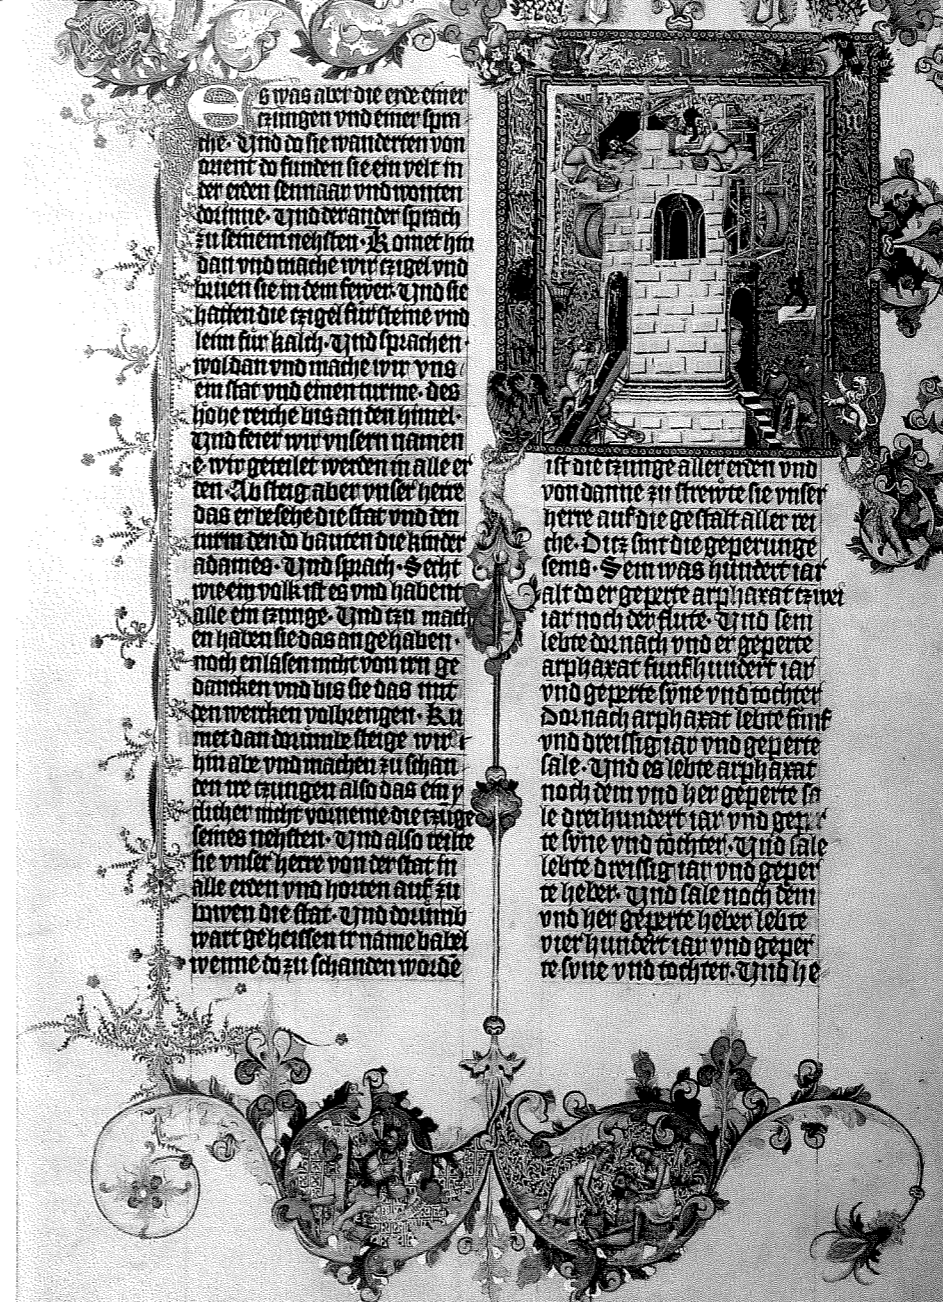 Es was aber die erde einer
czungen vnd einer spra
che · Und do sie wanderten von
orient do funden sie ein velt in
der erden sennaar vnd wonten
dorinne · Und der ander sprach
zu seinem nehsten · Komet hin
dan vnd mache wir czigel vnd
bruen sie in dem fewer · Und sie
hatten die czigel für steine vnd
leim für kalch · Und sprachen ·
wol dan vnd mache wir vns
ein stat vnd einen turme · des
höhe reiche bis an den himel ·
Und feier wir vnsern namen
e · wir geteilet werden in alle er
den · Ab steig aber vnser herre
das er besehe die stat vnd den
turm den do bauten die kinder
adames · Und sprach · Secht
wie ein volk ist es vnd habent
alle ein czunge · Und czu mach
en haben sie das an gehaben ·
noch enlasen nicht von irn ge
dancken vnd bis sie das mit
den wercken volbrengen · Ku
met dan dorumbe steige wir
hin abe vnd machen zu schan
den ire czungen also das ein y
clicher nicht vorneme die czüge
seines nehsten · Und also teilte
sie vnser herre von der stat in
alle erden vnd horten auf zu
bawen die stat · Und dorumb
wart geheissen ir name babel
wenne do zu schanden wordē
ist die czunge aller erden vnd
von danne zu strewte sie vnser
herre auf die gestalt aller rei
che · Ditz sint die geperunge
sems · Sem was hundert iar
alt do er geperte arphaxat czwei
iar noch der flute · Und sem
lebte dornach vnd er geperte
arphaxat funfhundert iar
vnd geperte sune vnd tochter
Dornach arphaxat lebte funf
vnd dreissig iar vnd geperte
sale · Und es lebte arphaxat
noch dem vnd her geperte sa
le dreihundert iar vnd geper
te süne vnd töchter · Und sale
lebte dreissig iar vnd geper
te heber · Und sale noch dem
vnd her geperte heber lebte
vierhundert iar vnd geper
te sune vnd tochter · Und he